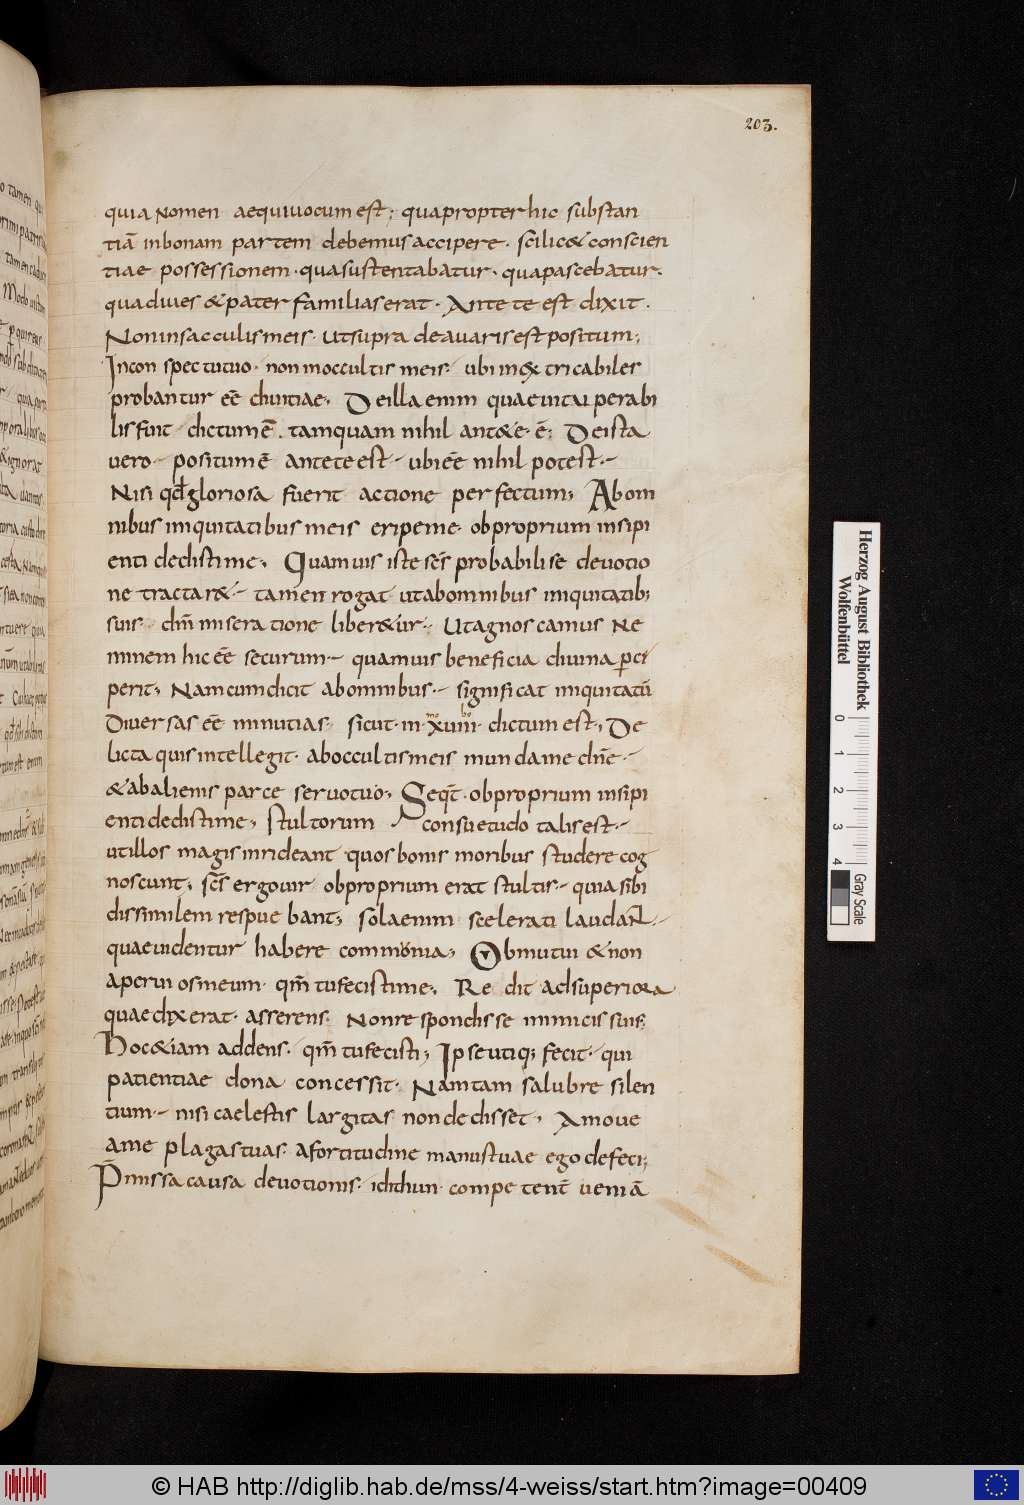 203.
quia nomen aequiuocum est; quapropter hic substan
tiā in bonam partem debemus accipere. scilic& conscien
tiae possessionem. qua sustentabatur. qua pascebatur.
qua diues & pater familias erat. Ante te est dixit.
Non in sacculis meis. ut supra de auaris est positum;
In conspectu tuo. non in occultis meis. ubi inextricabiles
probantur eē diuitiae. De illa enim quae uitupe rabi
lis fuit dictum ē. tamquam nihil ant& e. ē; De ista
uero. positum ē ante te est. ubi eē nihil potest.
Nisi qđ gloriosa fuerit actione perfectum; Ab om
nibus iniquitatibus meis eripe me. obproprium insipi
enti dedisti me. Quamuis iste scs̄ probabili se deuotio
ne tractar&. tamen rogat ut ab omnibus iniquitatib;
suis. dn̄i miseratione liber&ur. Ut agnoscamus ne
minem hic eē securum. quamuis beneficia diuina ꝑci
perit; Nam cum dicit ab omnibus. significat iniquitatū
diuersas eē minutias. sicut in xuiii. dictum est; De
licta quis intellegit. ab occultis meis munda me dn̄e.
& ab alienis parce seruo tuo; Seqt̄. obproprium insipi
enti dedisti me; Stultorum consuetudo talis est.
ut illos magis inrideant quos bonis moribus studere cog
noscunt; scs̄ ergo uir obproprium erat stultis. quia sibi
dissimilem respuebant; sola enim scelerati laudant.
quae uidentur habere commonia; Obmutui & non
aperui os meum. qm̄ tu fecisti me. Redit ad superiora
quae dixerat. asserens. Non respondisse inimicis suis;
Hoc &iam addens. qm̄ tu fecisti; Ipse utiq; fecit. qui
patientiae dona concessit. Nam tam salubre silen
tium. nisi caelestis largitas non dedisset. Amoue
a me plagas tuas. a fortitudine manus tuae ego defeci;
P̄missa causa deuotionis. compe tent̄ ueniā
Herzog August Bibliothek
Wolfenbüttel
0 1 2 3 4
Gray Scale
© HAB http://diglib.hab.de/mss/4-weiss/start.htm?image=00409